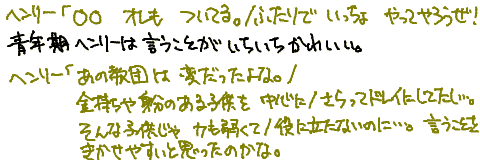 ヘンリー「○○ オレも ついてる。/ふたりで いっちょ やってやろうぜ!
青年期ヘンリーは言うことがいちいちかわいい。
ヘンリー「あの教団は 変だったよな。/
金持ちや身分のある子供を 中心に/さらってドレイにしてたし…。
そんな子供じゃ 力も弱くて/役に立たないのに…。 言うことを
きかせやすいと思ったのかな。